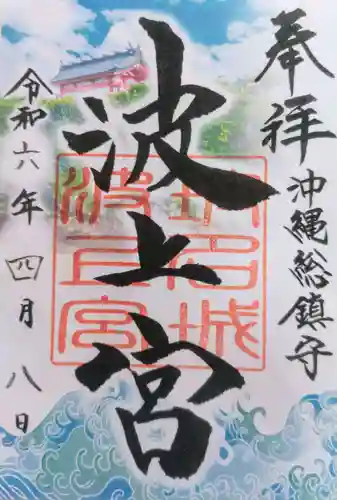 奉拝
沖縄総鎮守
波上宮
令和六年四月八日